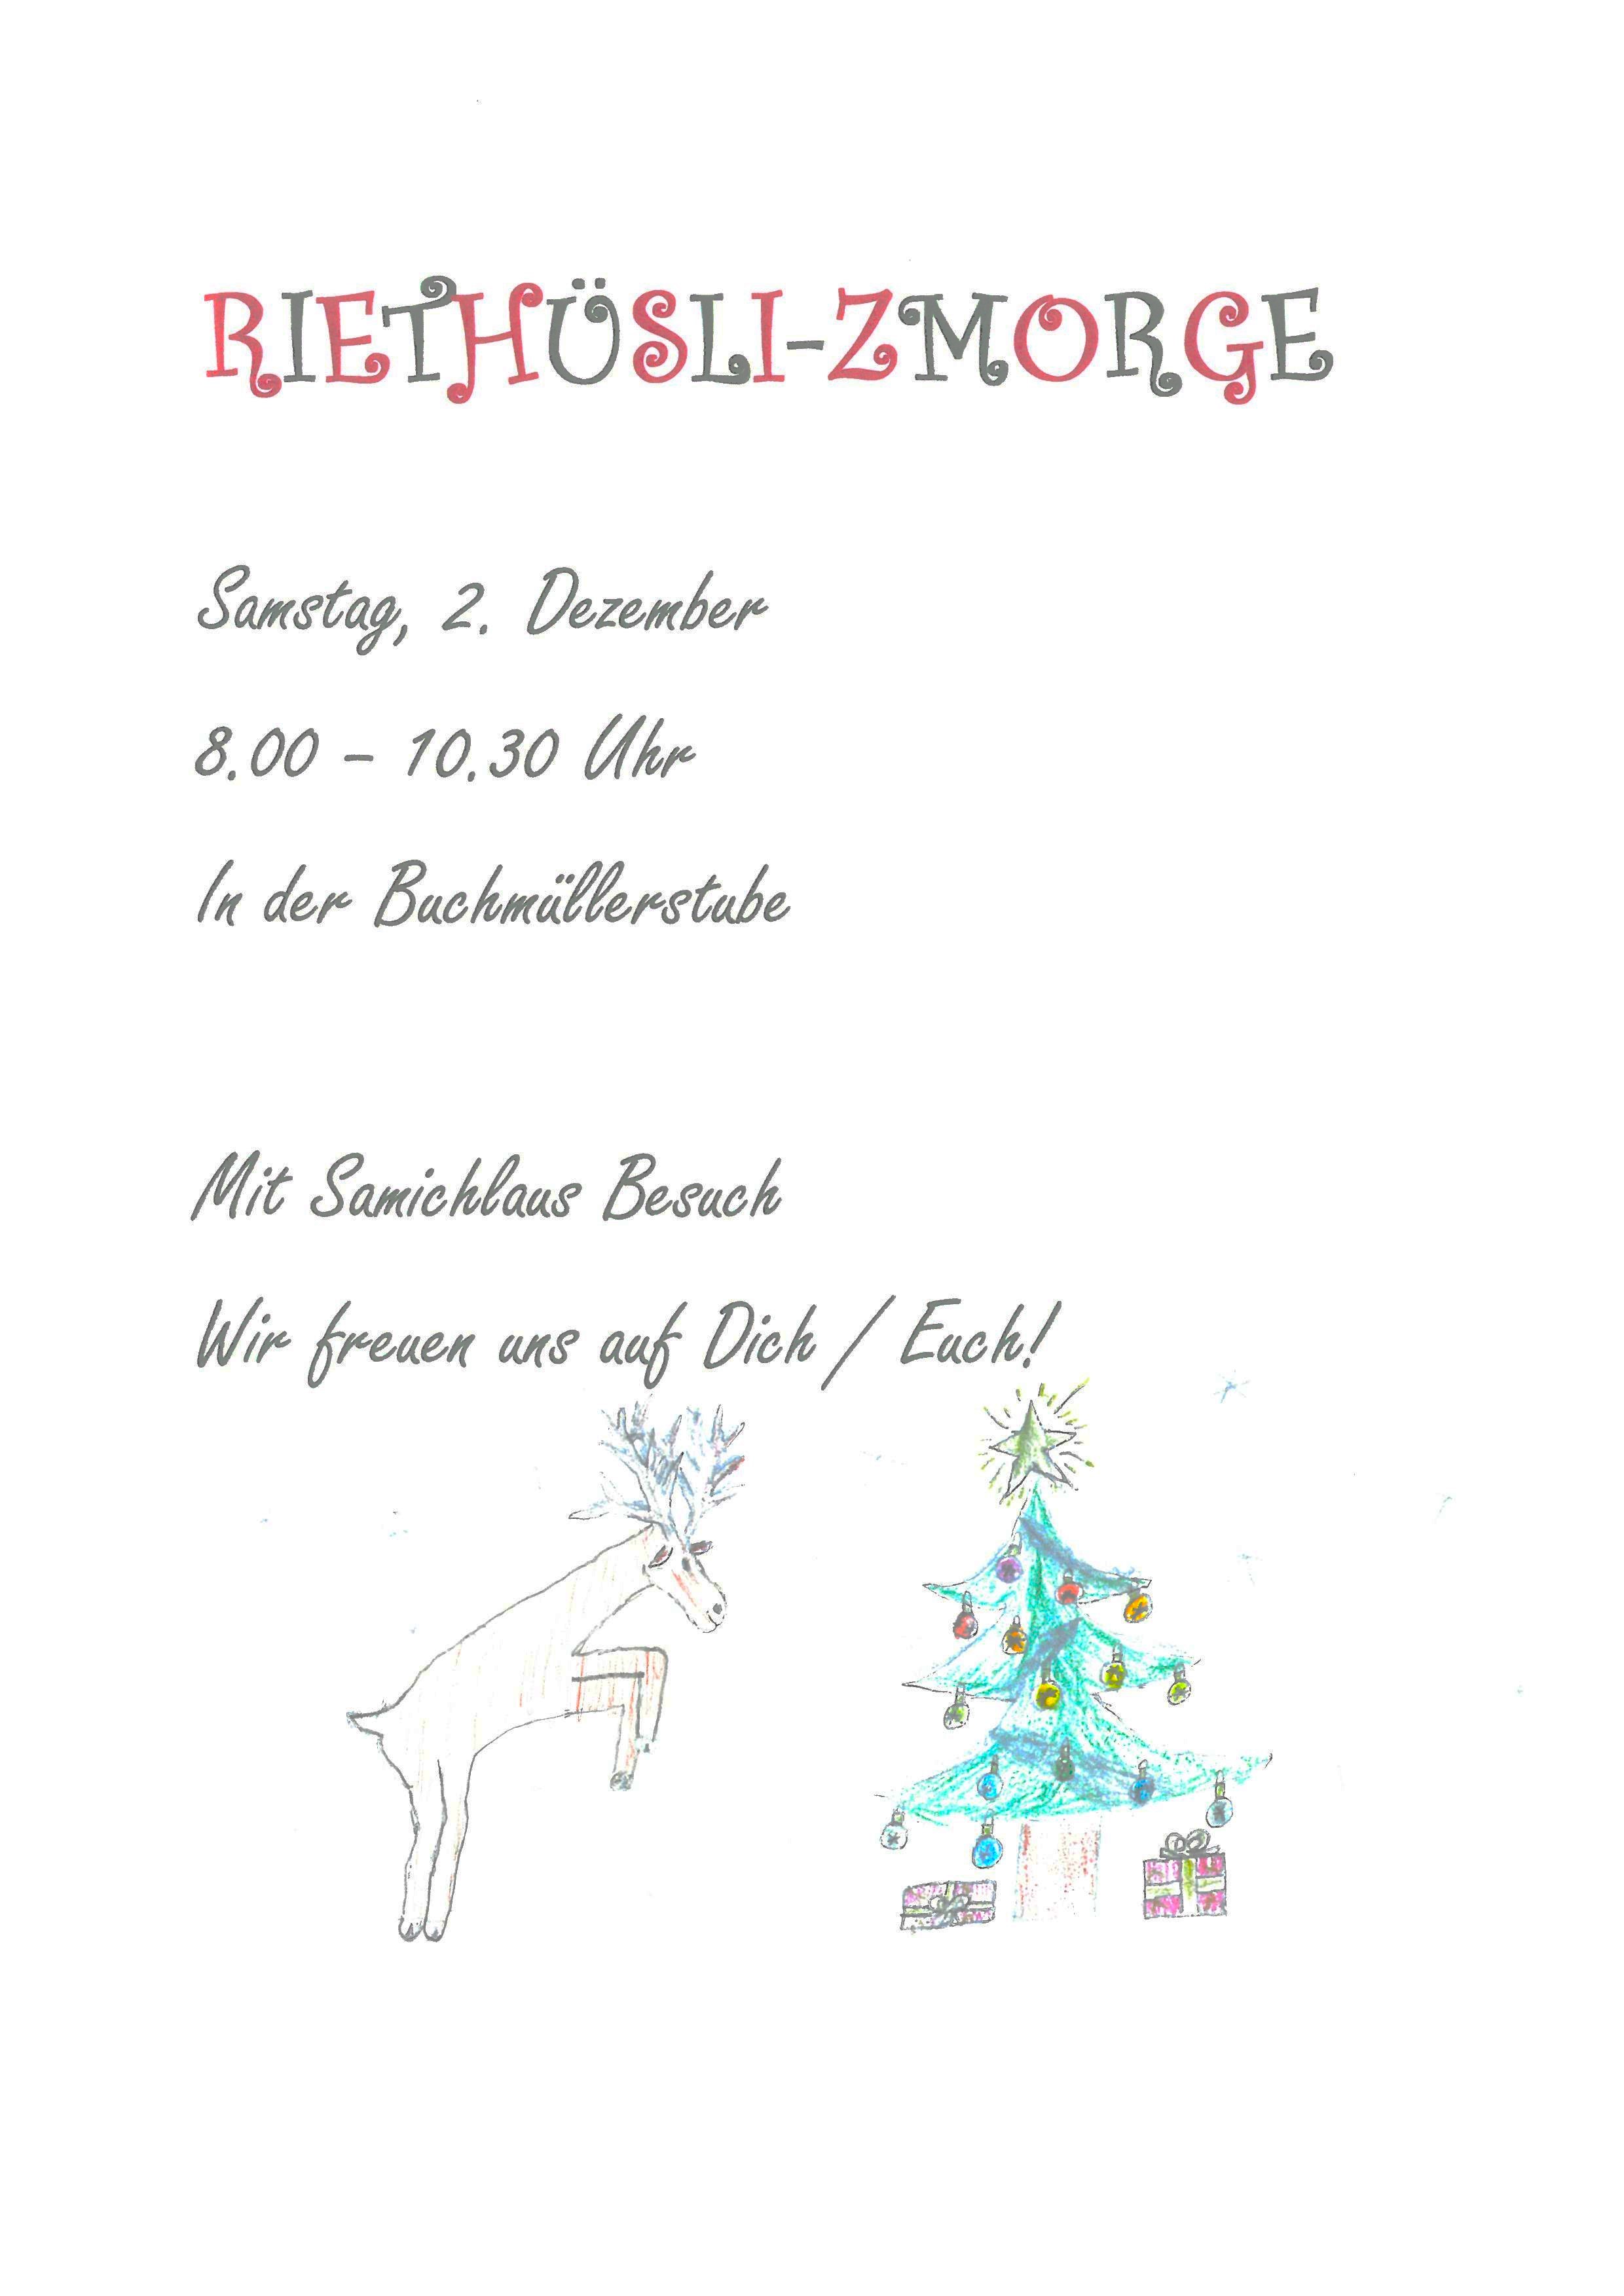 RIETHÜSLI-ZMORGE
Samstag, 2. Dezember
8.00 – 10.30 Uhr
In der Buchmüllerstube
Mit Samichlaus Besuch
Wir freuen uns auf Dich / Euch!